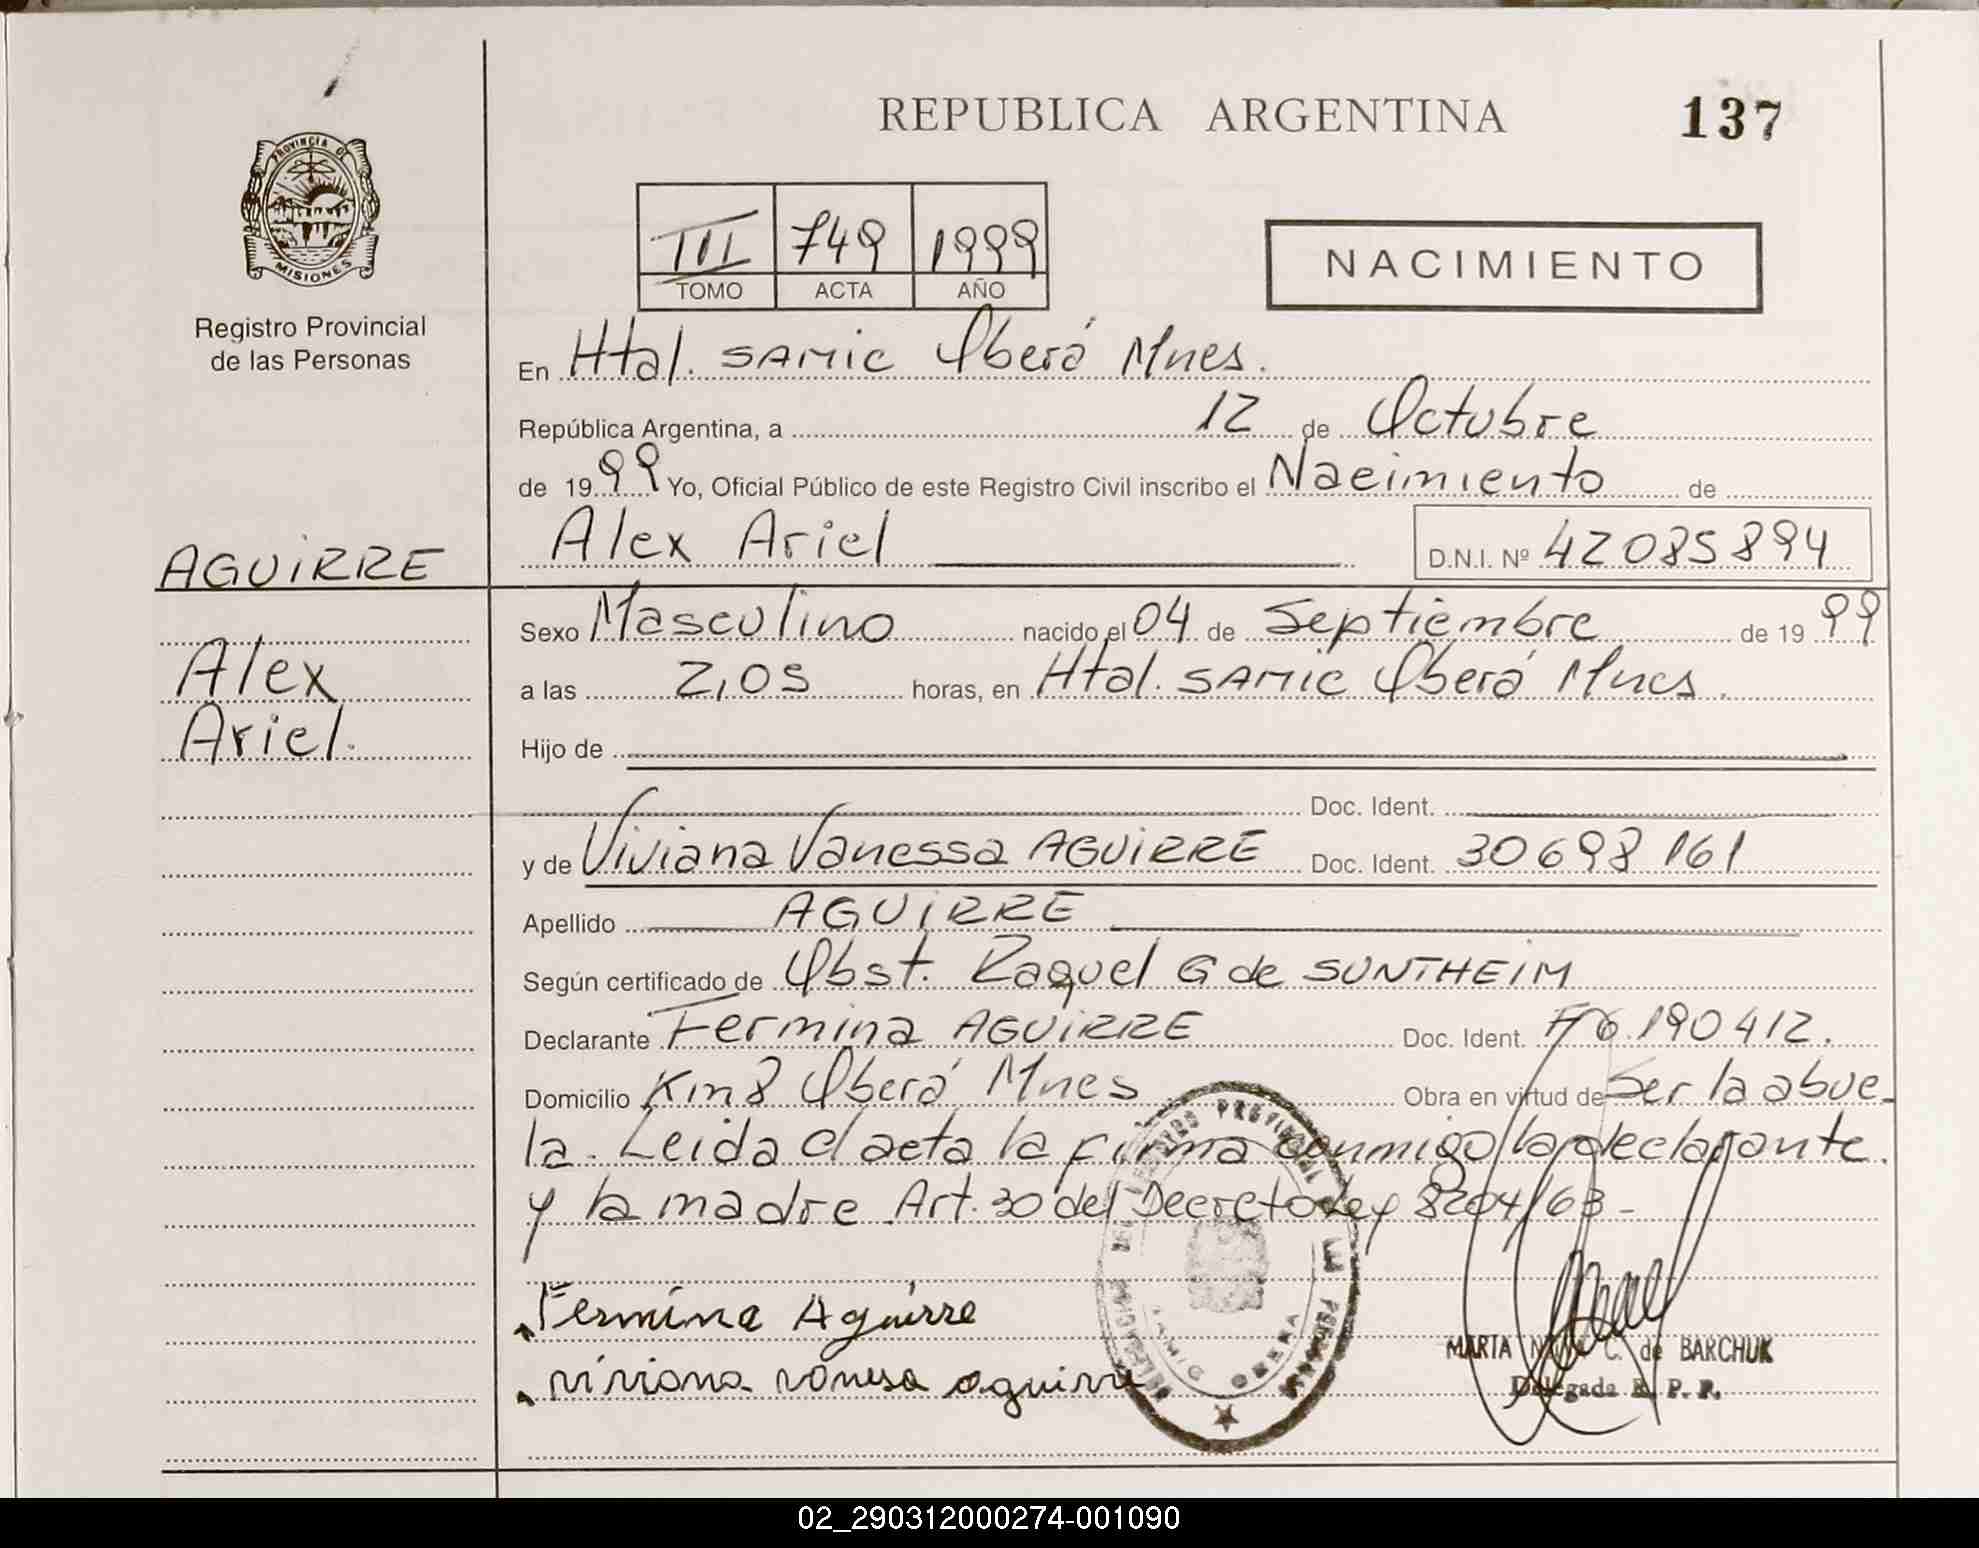 REPUBLICA ARGENTINA
137
PROVINCIA DE
MISIONES
Registro Provincial
de las Personas
III 749 1999
TOMO ACTA AÑO
NACIMIENTO
En Htal. SAMIC Oberá Mnes.
República Argentina, a 12 de Octubre
de 1999 Yo, Oficial Público de este Registro Civil inscribo el Nacimiento de
Alex Ariel D.N.I. Nº 42085894
AGUIRRE
Alex
Ariel.
Sexo Masculino nacido el 04 de Septiembre de 1999
a las 2,05 horas, en Htal. SAMIC Oberá Mnes.
Hijo de
Doc. Ident.
y de Viviana Vanessa AGUIRRE Doc. Ident. 30698161
Apellido AGUIRRE
Según certificado de Obst. Raquel G de SUNTHEIM
Declarante Fermina AGUIRRE Doc. Ident. F 6.190412.
Domicilio Km 8 Oberá Mnes Obra en virtud de Ser la abue-
la. Leida el acta la firma conmigo la declarante.
y la madre Art. 30 del Decreto Ley 8204/63-
Fermina Aguirre
viviana vanesa aguirre
OBERA
MARTA C. de BARCHUK
Delegada R. P. P.
02_290312000274-001090